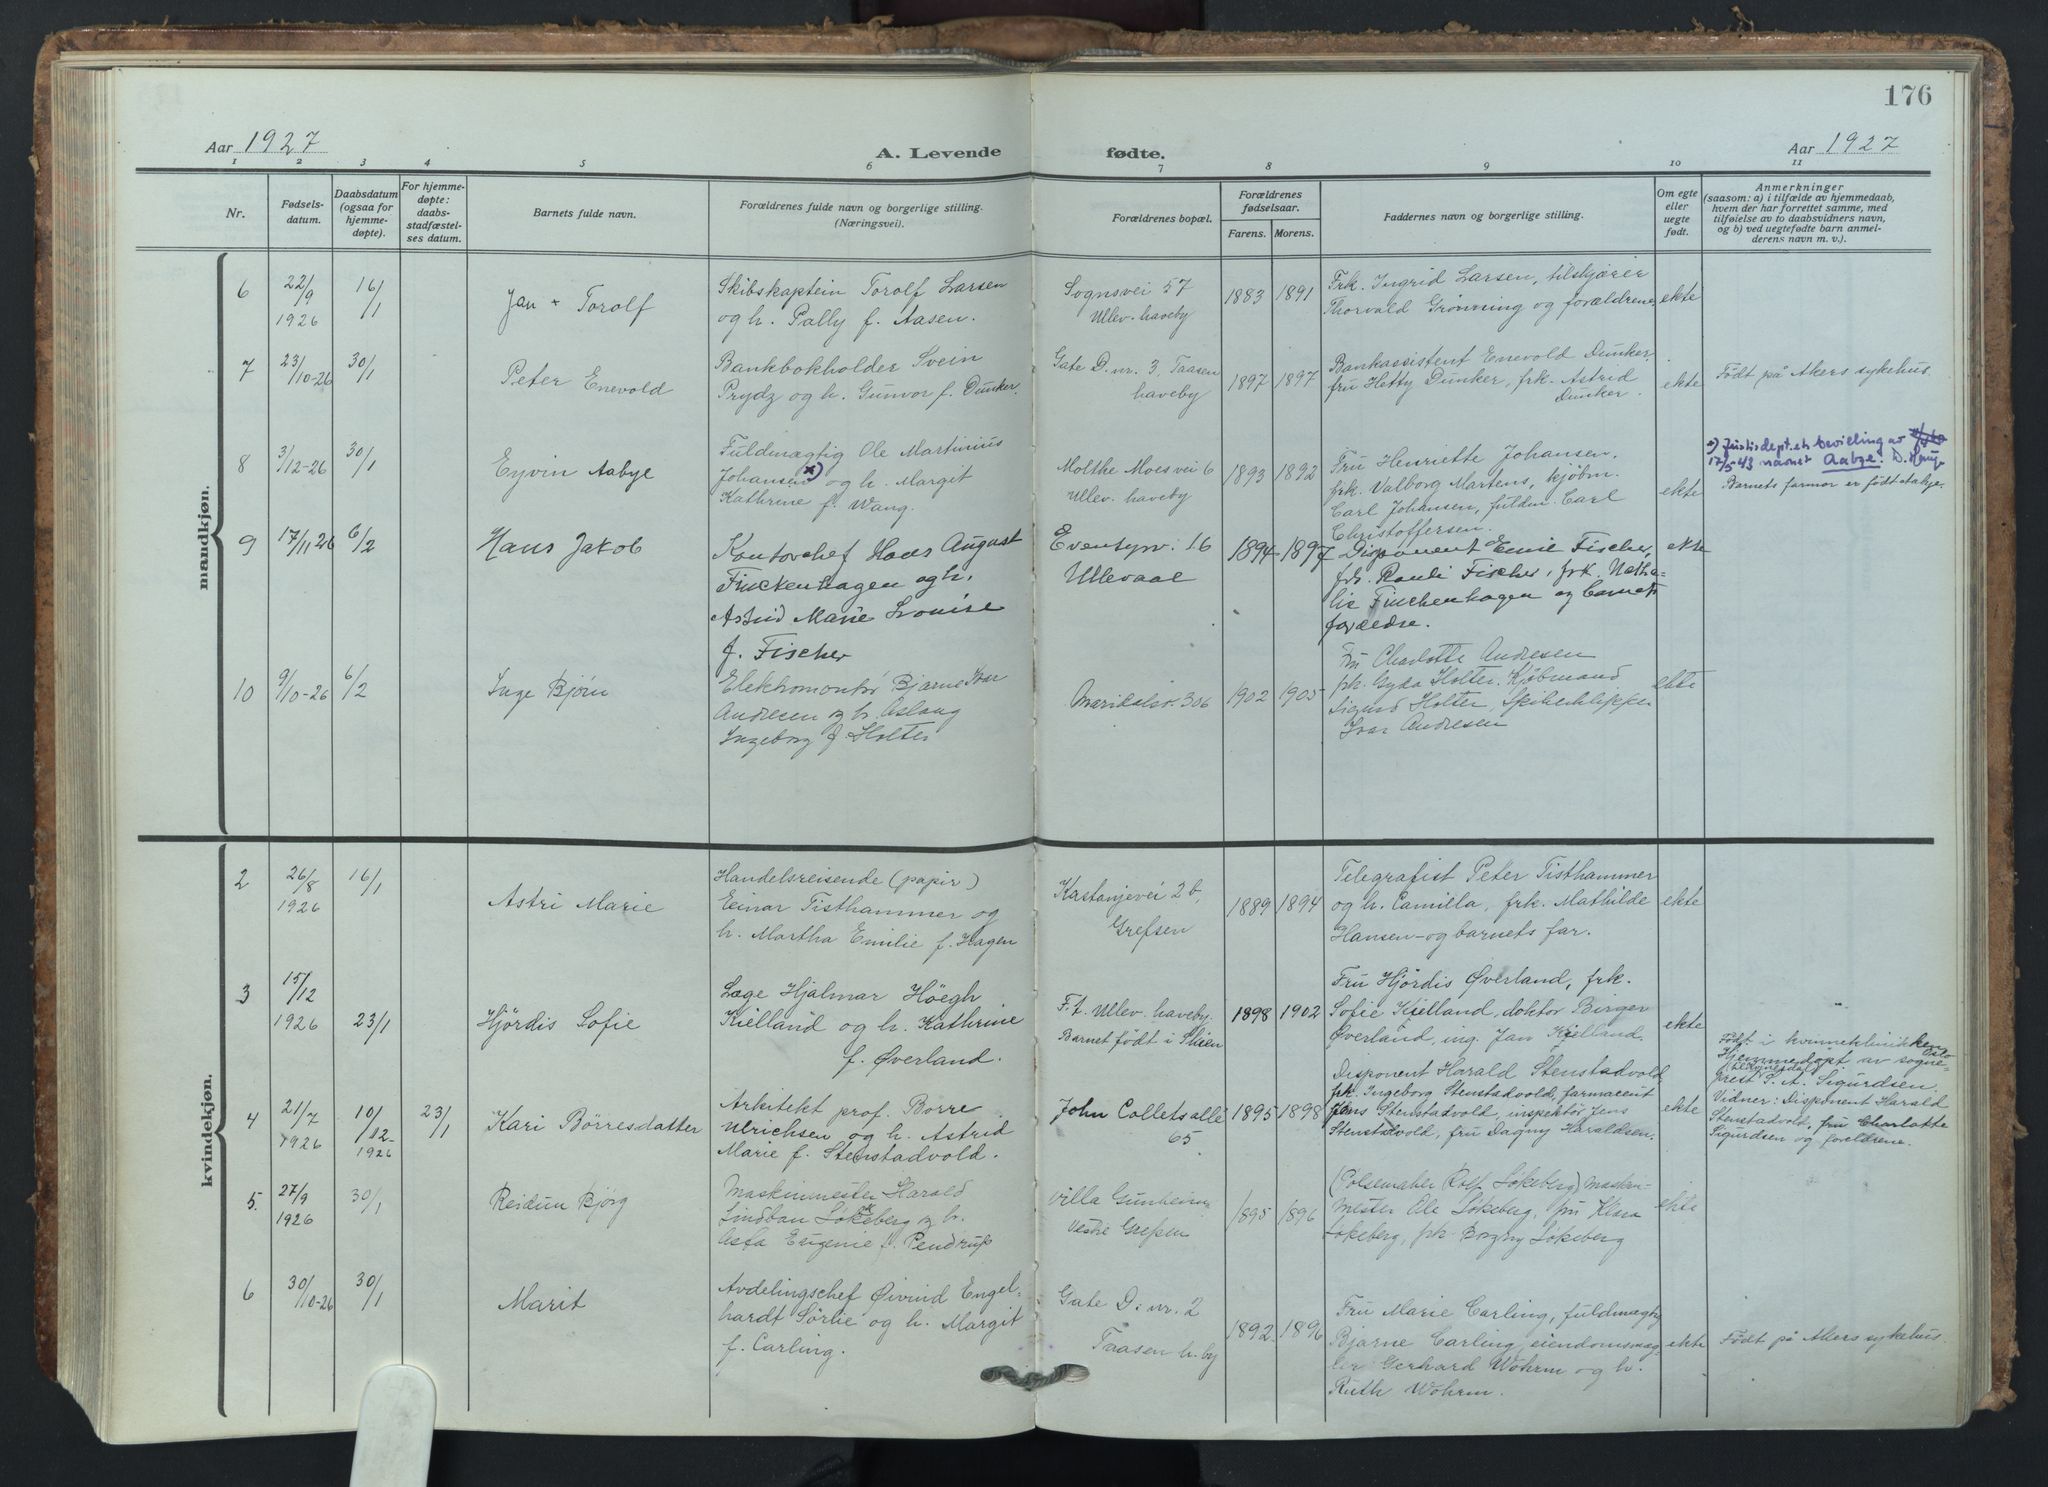 176
Aar 1927
A. Levende fødte.
Aar 1927
1 2 3 4 5 6 7 8 9 10 11
Nr.
Fødsels-
datum.
Daabsdatum
(ogsaa for
hjemme-
døpte).
For hjemme-
døpte:
daabs-
stadfæstel-
ses datum.
Barnets fulde navn.
Forældrenes fulde navn og borgerlige stilling.
(Næringsvei).
Forældrenes bopæl.
Forældrenes
fødselsaar.
Farens. Morens.
Faddernes navn og borgerlige stilling.
Om egte
eller
uegte
født.
Anmerkninger
(saasom: a) i tilfælde av hjemmedaab,
hvem der har forrettet samme, med
tilføielse av to daabsvidners navn,
og b) ved uegtefødte barn anmel-
derens navn m. v.).
mandkjøn.
6
22/9
1926
16/1
Jan + Torolf
Skibskaptein Torolf Larsen
og h. Pally f. Aasen.
Sognsvei 57
Ullev. haveby
1883 1891
Frk. Ingrid Larsen, tilskjærer
Thorvald Grønning og forældrene
ekte
7
23/10-26
30/1
Peter Enevold
Bankbokholder Svein
Prydz og h. Gunvor f. Dunker.
Gate D. nr. 3, Taasen
haveby
1897 1897
Bankassistent Enevold Dunker
fru Hetty Dunker, frk. Astrid
Dunker.
ekte
Født på Akers sykehus.
8
3/12-26
30/1
Eyvin Aabye
Fuldmægtig Ole Martinius
Johansen x) og h. Margit
Kathrine f. Wang.
Molthe Moesvei 6
Ullev. haveby
1893 1892
Fru Henriette Johansen,
frk. Valborg Martens, kjøbm.
Carl Johansen, fuldm. Carl
Christoffersen.
ekte
x) Justisdept.ets bevilling av
17/5 43 navnet Aabye.
Barnets farmor er født Aabye.
9
17/11 26
6/2
Hans Jakob
Kontorchef Hans August
Finckenhagen og h.
Astrid Marie Louise
f. Fischer
Eventyrv. 16
Ullevaal
1894 1897
Disponent Emil Fischer,
frk. Pauli Fischer, frk. Natha-
lie Finckenhagen og barnets
forældre.
ekte
10
9/10-26
6/2
Inge Bjørn
Elektromontør Bjarne Ivar
Andresen og h. Aslaug
Ingeborg f. Holter
Maridalsv. 306
1902 1905
Fru Charlotte Andresen
frk. Gyda Holter. Kjøbmand
Sigurd Holter,
Ivar Andresen
ekte
kvindekjøn.
2
26/8
1926
16/1
Astri Marie
Handelsreisende (papir)
Einar Tisthammer og
h. Martha Emilie f. Hagen
Kastanjevei 2b,
Grefsen
1889 1894
Telegrafist Peter Tisthammer
og h. Camilla, frk. Mathilde
Hansen - og barnets far.
ekte
3
15/12
1926
23/1
Hjördis Sofie
Læge Hjalmar Höegh
Kielland og h. Kathrine
f. Øverland.
F.t. Ullev. haveby.
Barnet født i Skien
1898 1902
Fru Hjördis Øverland, frk.
Sofie Kielland, doktor Birger
Øverland, ing. Jan Kielland.
ekte
4
21/7
1926
10/12-
1926
23/1
Kari Børresdatter
Arkitekt prof. Børre
Ulrichsen og h. Astrid
Marie f. Stenstadvold.
John Collets allé
65
1895 1898
Disponent Harald Stenstadvold,
frk. Ingeborg Stenstadvold, farmaceut
Jens Stenstadvold, inspektör Jens
Stenstadvold, fru Dagny Haraldsen.
ekte
Født i kvinneklinikken Oslo
Hjemmedøpt av sogne-
prest S. A. Sigurdsen.
Vidner: Disponent Harald
Stenstadvold, fru Charlotte
Sigurdsen og foreldrene.
5.
27/9
1926
30/1
Reidun Bjørg
Maskinmester Harald
Lindbau Løkeberg og h.
Asfa Eugenie f. Pendrup
Villa Gunheim
Vestre Grefsen
1895 1896
(Rolf Løkeberg) maskin-
mester Ole Løkeberg, fru Klara
Løkeberg, frk. Borgny Løkeberg
ekte
6
30/10-26
30/1
Marit
Avdelingschef Øivind Engel-
hardt Sörlie og h. Margit
f. Carling.
Gate D. nr. 2
Taasen h. by
1892 1896
Fru Marie Carling, fuldmægtig
Bjarne Carling, eiendomsmæg-
ler Gerhard Wohrm og h.
Ruth Wohrm.
ekte
Født på Akers sykehus.